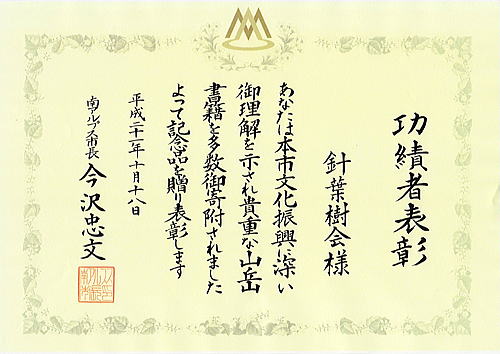 功績者表彰
針葉樹会様
あなたは本市文化振興に深い
御理解を示され貴重な山岳
書籍を多数御寄附されました
よって記念品を贈り表彰します
平成二十一年十月十八日
南アルプス市長 今沢忠文